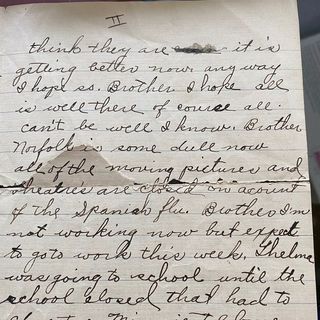 II
think they are it is
getting better now. any way
I hope so. Brother I hope all
is well there of course all.
can't be well I know. Brother
Norfolk is some dull now
all of the moving pictures and
theatres are closed on account
of the Spanish flu. Brother I'm
not working now but expect
to goto work this week. Thelma
was going to school until the
school closed that had to